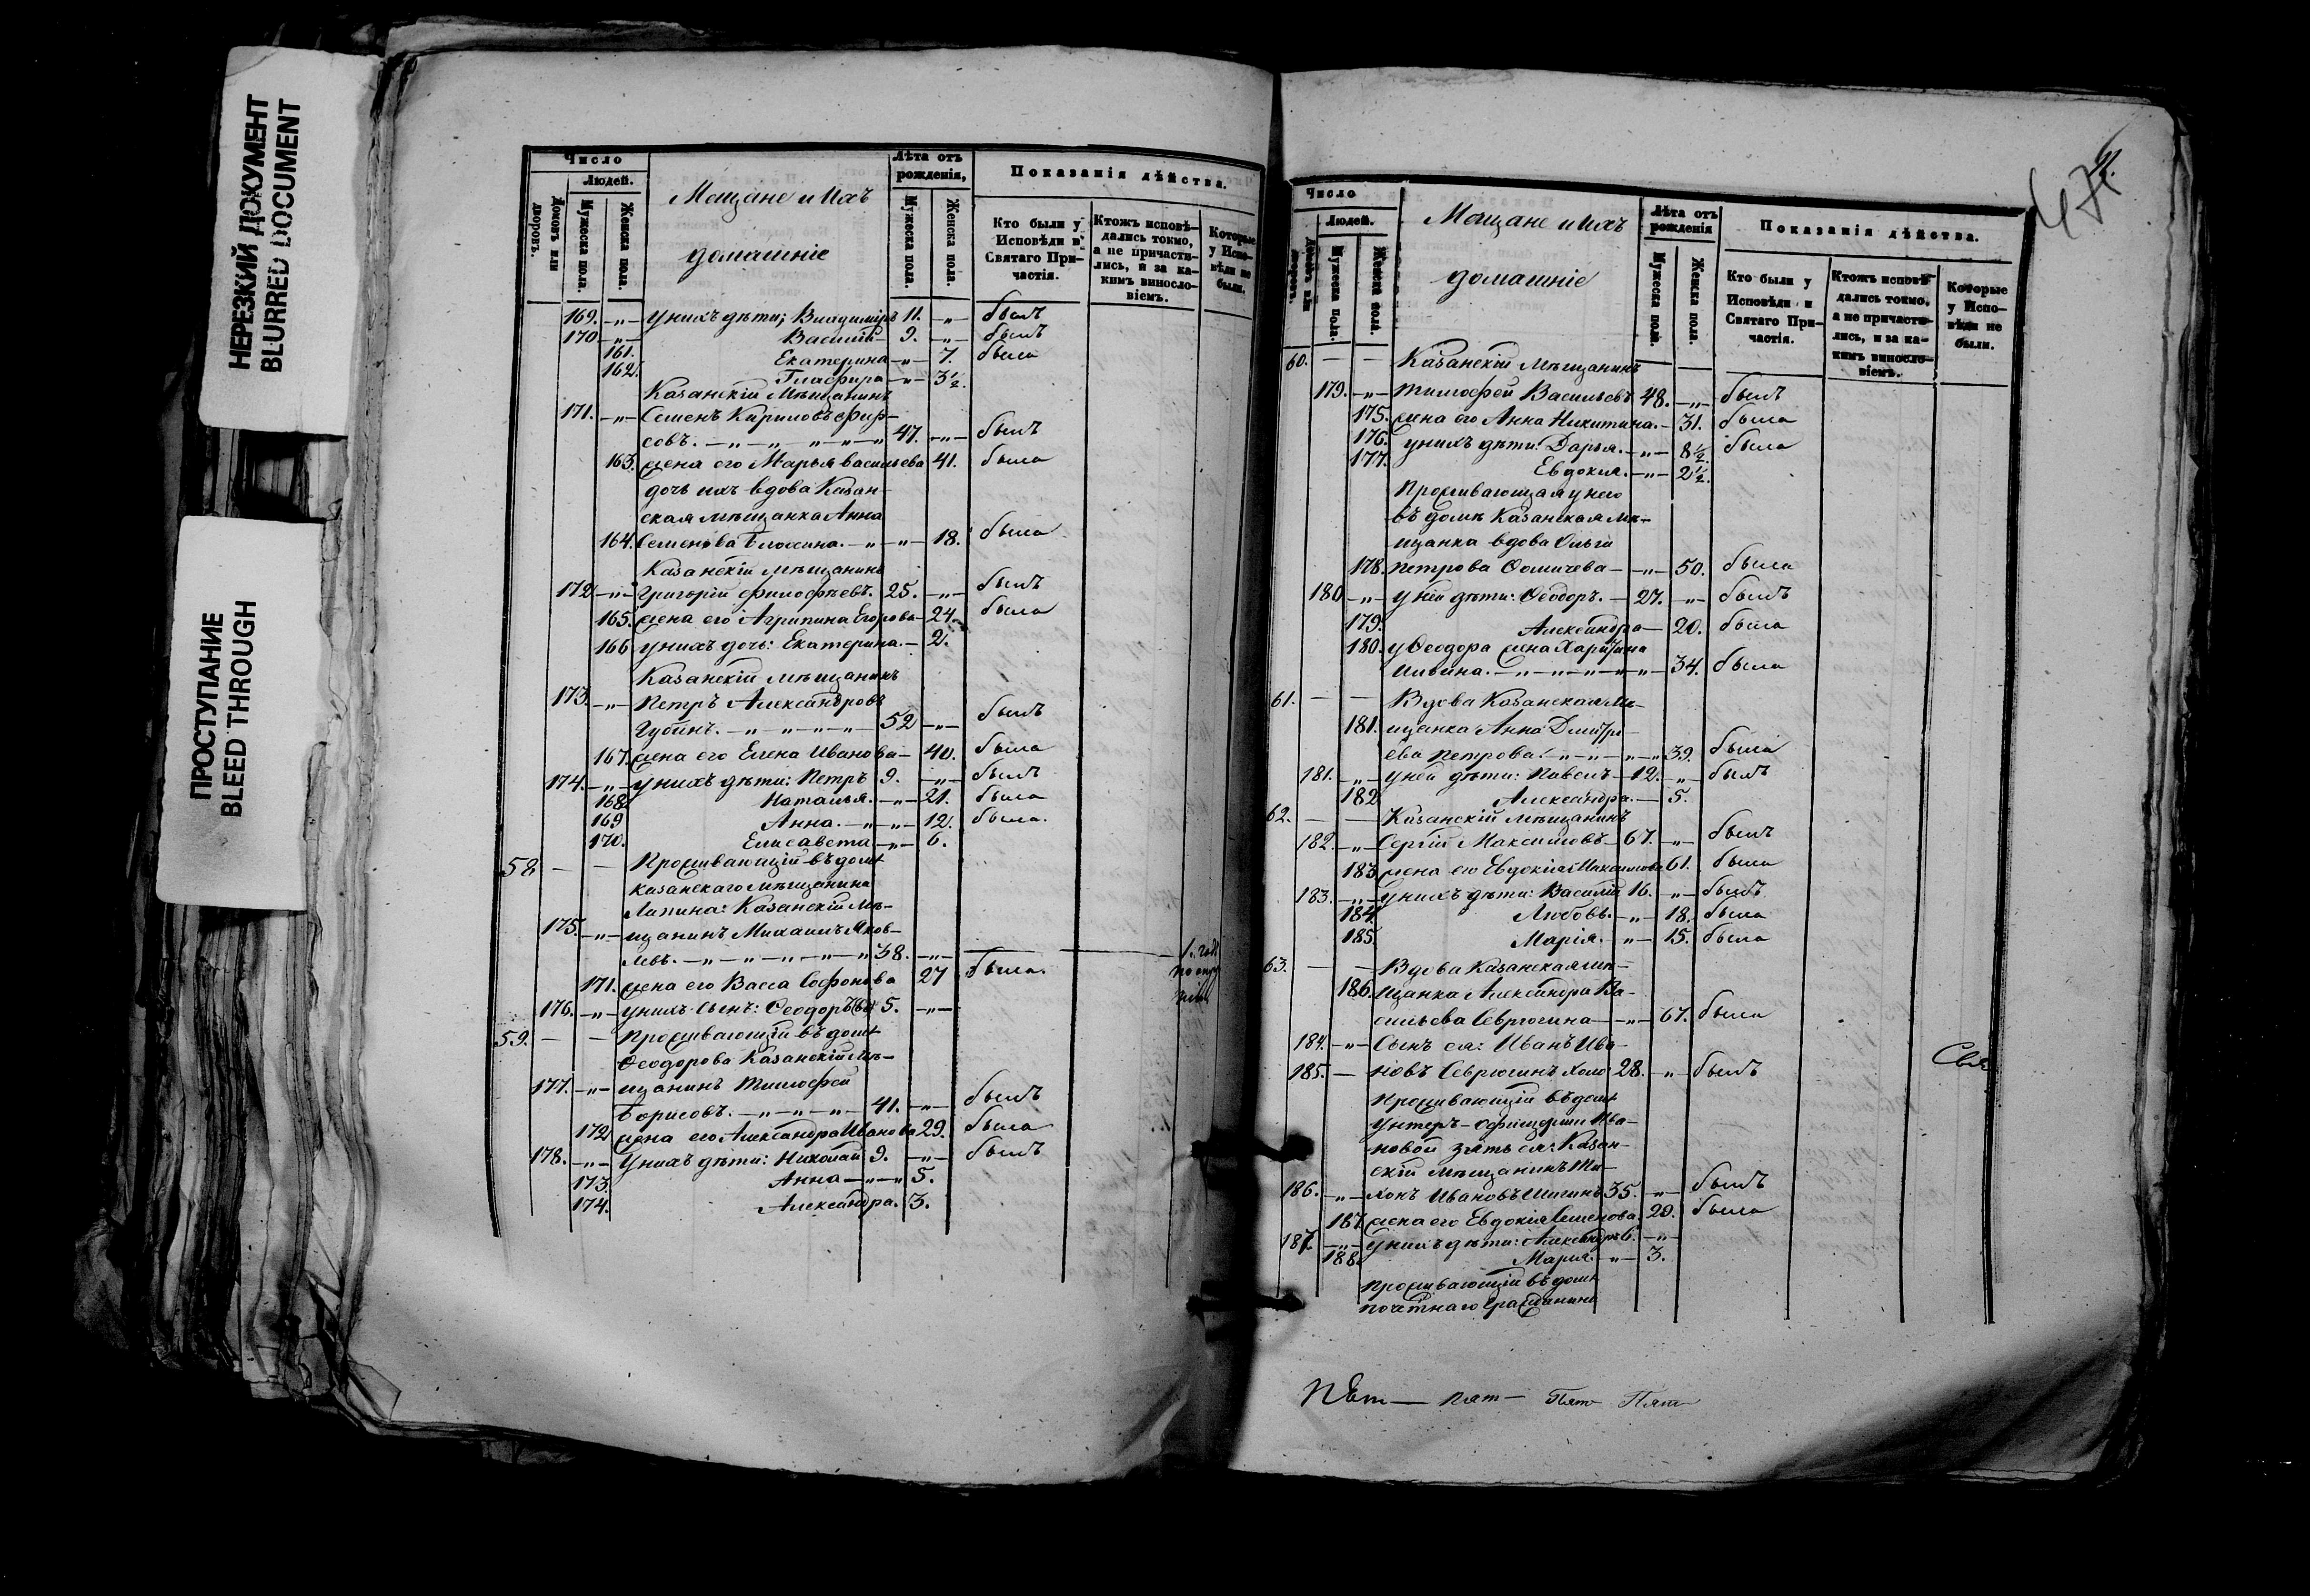 НЕРЕЗКИЙ ДОКУМЕНТ
BLURRED DOCUMENT
ПРОСТУПАНИЕ
BLEED THROUGH
Число
Людей.
Домовъ или дворовъ.
Мужеска пола.
Женска пола.
Мещане и ихъ
домашніе
Лѣта отъ рожденія,
Мужеска пола.
Женска пола.
Показанія дѣйства.
Кто были у Исповѣди и Святаго Причастія.
Ктожъ исповѣдались токмо, а не причастились, и за какимъ винословіемъ.
Которые у Исповѣди не были.
169. —„— у нихъ дѣти; Владиміръ 11. —„— былъ
170 —„— Василій — 9. —„— былъ
161. Екатерина —„— 7. была
162. Гласфира —„— 3½.
Казанскій мѣщанинъ
171. —„— Семенъ Кириловъ Фир-
совъ. —„—„—„—„—„ 47. —„— былъ
163. жена его Марья Васильева 41. была
дочь ихъ вдова Казан-
ская мѣщанка Анна
164. Семенова —„—„— 18. была
Казанскій мѣщанинъ
172 —„— Григорій Филофѣевъ. 25. —„— былъ
165. жена его Агрипина Егорова — 24. была
166 у нихъ дочь: Екатерина. — 2.
Казанскій мѣщанинъ
173. —„— Петръ Александровъ
Губинъ. —„—„—„—„— 52 —„— былъ
167. жена его Елена Иванова — 40. была
174. —„— у нихъ дѣти: Петръ 9. —„— былъ
168 Наталья. —„— 21. была
169 Анна. —„—„— 12. была.
170. Елисавета —„— 6.
58 — — Проживающій въ домѣ
Казанскаго мѣщанина
Лапина: Казанскій мѣ-
175. —„— щанинъ Михаилъ Яков-
левъ. —„—„—„—„—„ 38. —„— 1. годъ
171. жена его Васса Софонова 27 была.
176. —„— у нихъ сынъ: Ѳеодоръ 5. —„—
59. — — Проживающій въ домѣ
Ѳеодорова Казанскій мѣ-
177. —„— щанинъ Тимофей
Борисовъ. —„—„—„— 41. —„— былъ
172 жена его Александра Иванова 29. была
178. —„— У нихъ дѣти: Николай 9. —„— былъ
173. Анна —„—„ 5.
174. Александра. 3.
47
Число
Людей.
Домовъ или дворовъ.
Мужеска пола.
Женска пола.
Мещане и ихъ
домашніе
Лѣта отъ рожденія
Мужеска пола.
Женска пола.
Показанія дѣйства.
Кто были у Исповѣди и Святаго Причастія.
Ктожъ исповѣдались токмо, а не причастились, и за какимъ винословіемъ.
Которые у Исповѣди не были.
60. — — Казанскій мѣщанинъ
179. —„— Тимофей Васильевъ 48. —„— былъ
175. жена его Анна Никитина. — 31. была
176. у нихъ дѣти: Дарья. —„— 8½. была
177. Евдокия. —„— 2½.
Проживающая у него
въ домѣ Казанская мѣ-
щанка вдова Ольга
178. Петрова Ѳомичева — —„— 50. была
180 —„— у ней дѣти: Ѳеодоръ. — 27. —„— былъ
179. Александра — 20. была
180. у Ѳеодора жена Харитина
Ильина. —„—„—„—„—„— 34. была
61. — — Вдова Казанская мѣ-
181. щанка Анна Дмитрі-
ева Петрова. —„—„—„—„ 39. была
181. —„— у ней дѣти: Павелъ — 12. —„— былъ
182 Александра. — 5.
62. — — Казанскій мѣщанинъ
182. —„— Сергій Максимовъ — 67. —„— былъ
183 жена его Евдокія Максимова 61. была
183. —„— у нихъ дѣти: Василій 16. —„— былъ
184. Любовь. —„— 18. была
185. Марія. —„— 15. была
63. — — Вдова Казанская мѣ-
186. щанка Александра Ва-
сильева Севрюгина —„— 67. была
184. —„— Сынъ ея: Иванъ Ива-
185. — новъ Севрюгинъ холо 28. —„— былъ
Проживающій въ домѣ
унтеръ-офицерши Ива-
новой зять ея: Казан-
скій мѣщанинъ Ти-
186. —„— хонъ Ивановъ 35. —„— былъ
187 жена его Евдокія Семенова. 29. была
187. —„— У нихъ дѣти: Александръ 6. —„—
188. Марія. —„— 3.
Проживающій въ домѣ
почетнаго гражданина
Пят — Пят — Пят Пят